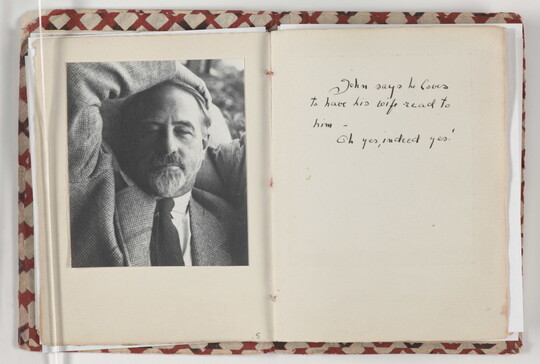 John says he loves
to have his wife read to
him -
Oh yes, indeed yes!
5